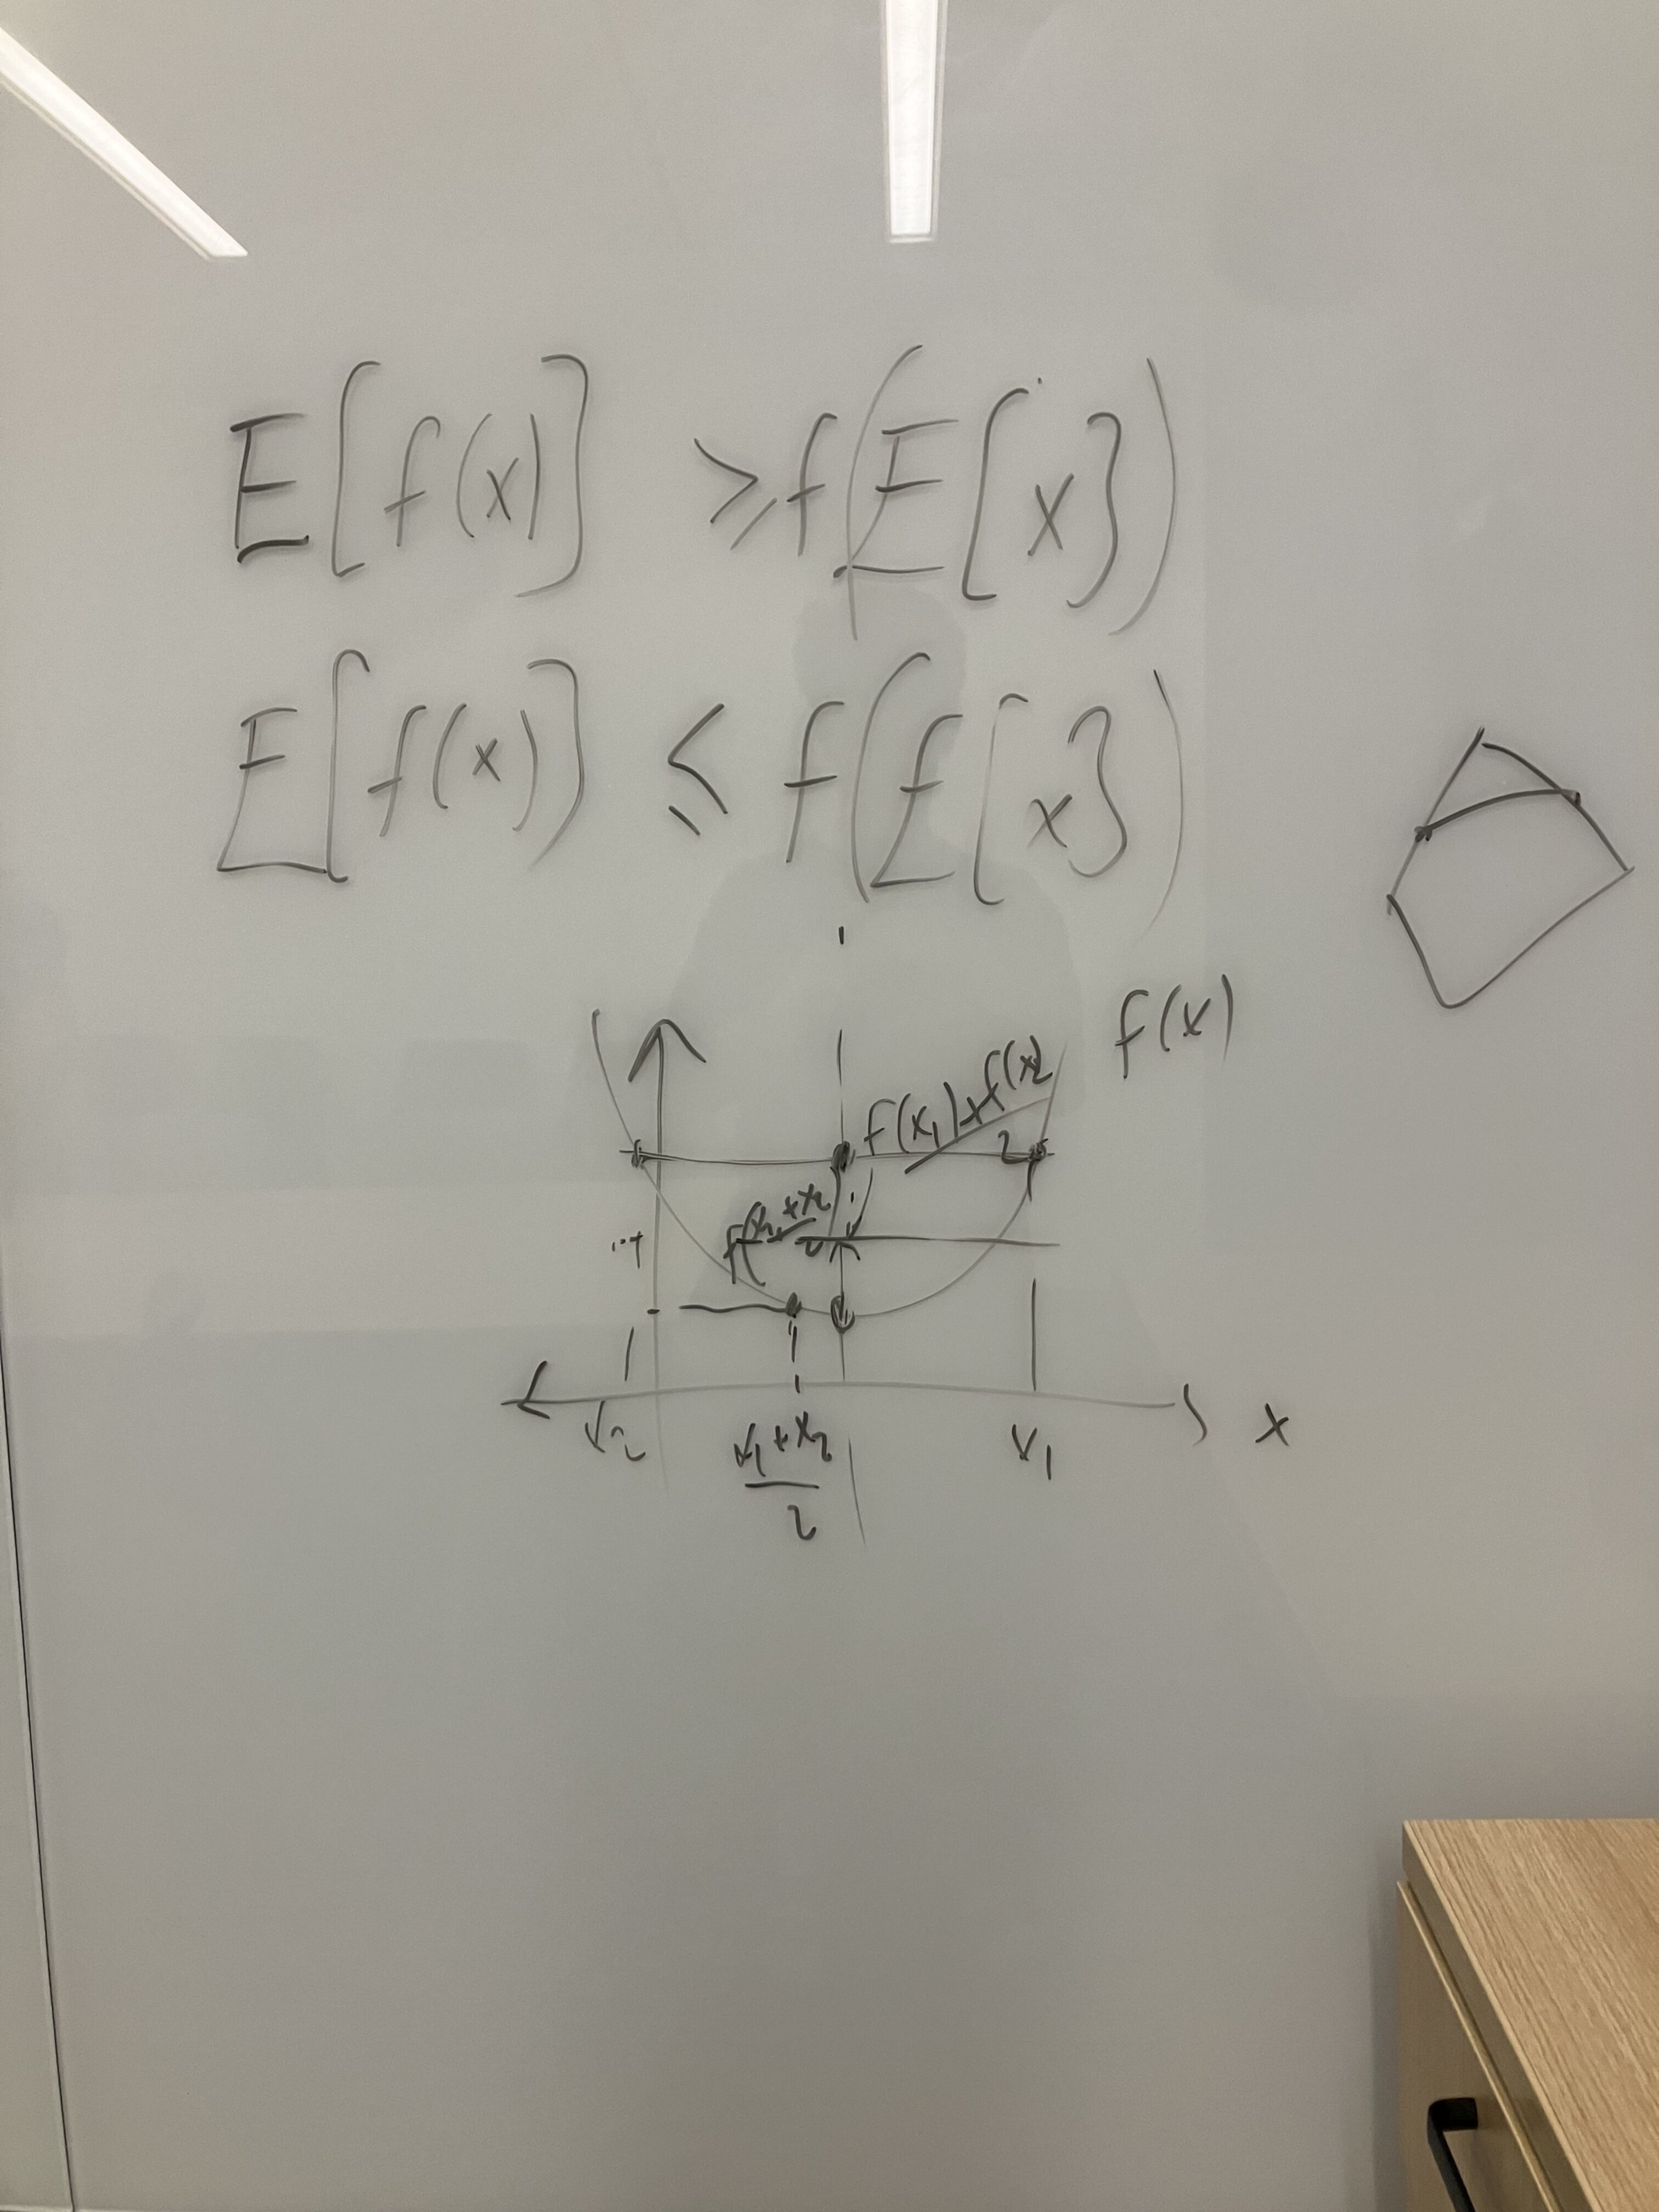 E[f(x)] ≥ f(E[x])
E[f(x)] ≤ f(E[x])
f(x)
f(x₁)+f(x₂
2
f(x₁+x₂
2
x₂
x₁+x₂
2
x₁
x